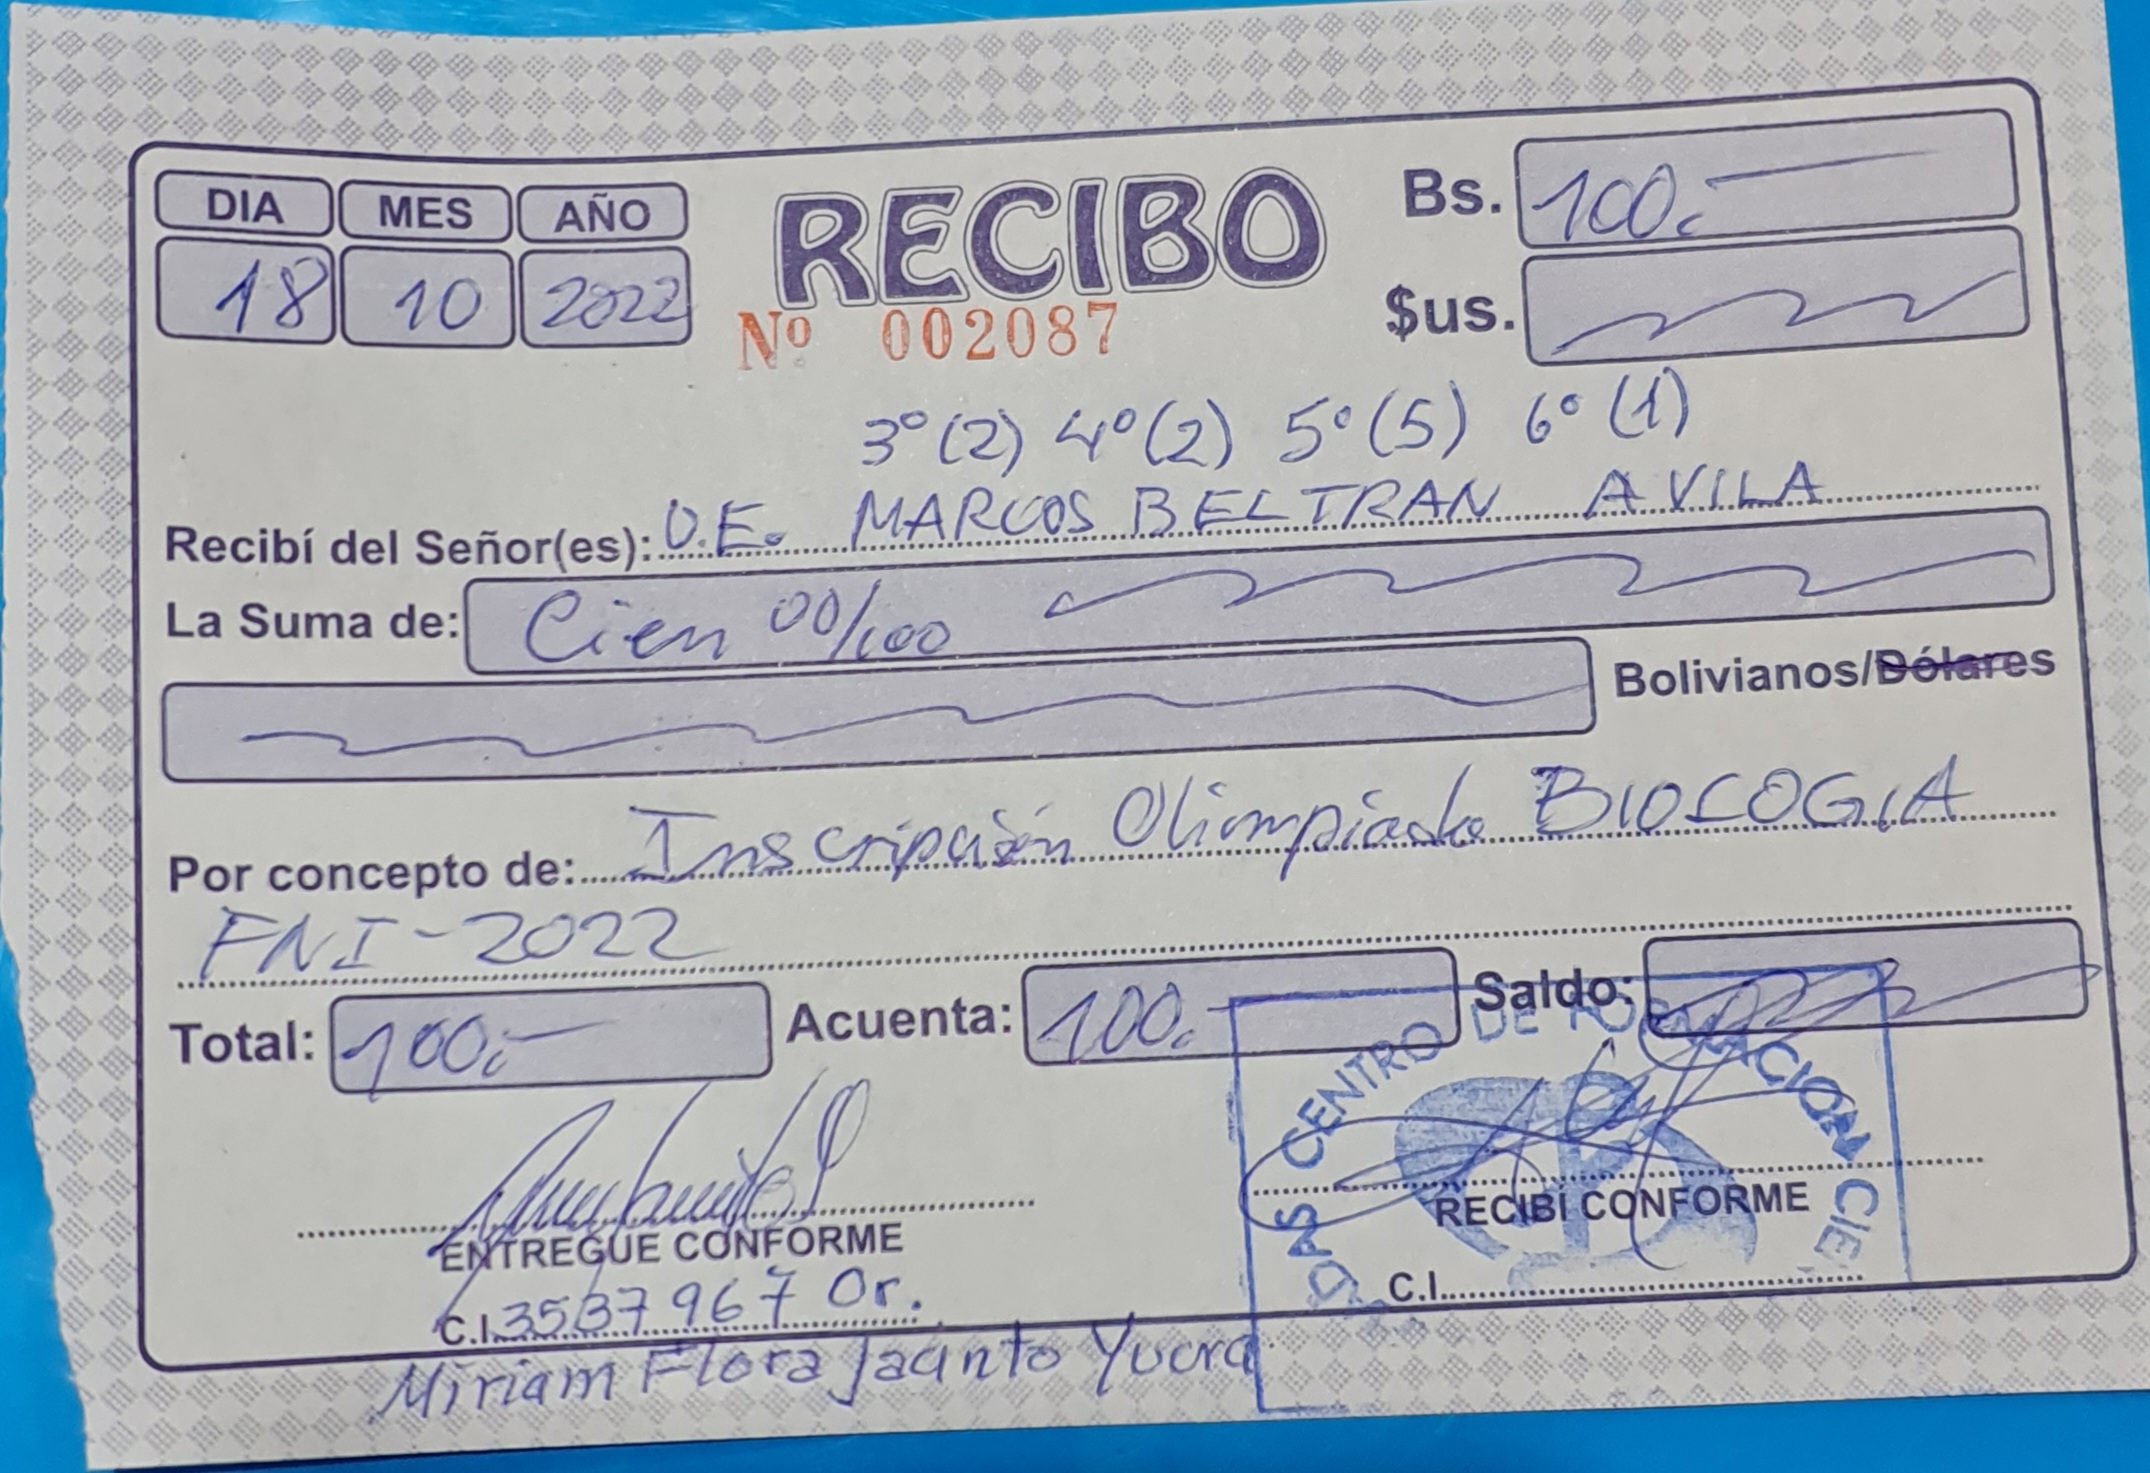 DIA MES AÑO
18 10 2022
RECIBO
Nº 002087
Bs. 100.-
$us.
3º (2) 4º (2) 5º (5) 6º (1)
Recibí del Señor(es): U.E. MARCOS BELTRAN AVILA
La Suma de: Cien 00/100
Bolivianos/Dólares
Por concepto de: Inscripción Olimpiada BIOLOGIA
FNI-2022
Total: 100.- Acuenta: 100.- Saldo:
CENTRO DE FORMACION CIE
DAS
ENTREGUE CONFORME
C.I. 3537967 Or.
Miriam Flora Jacinto Yucra
RECIBÍ CONFORME
C.I.